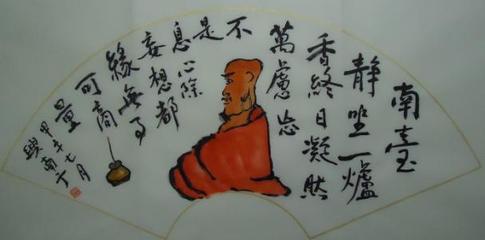 南臺
静坐一爐
香終日凝然
萬慮忘
不
是
息心除
妄想都
緣無事
可商
量
甲午七月